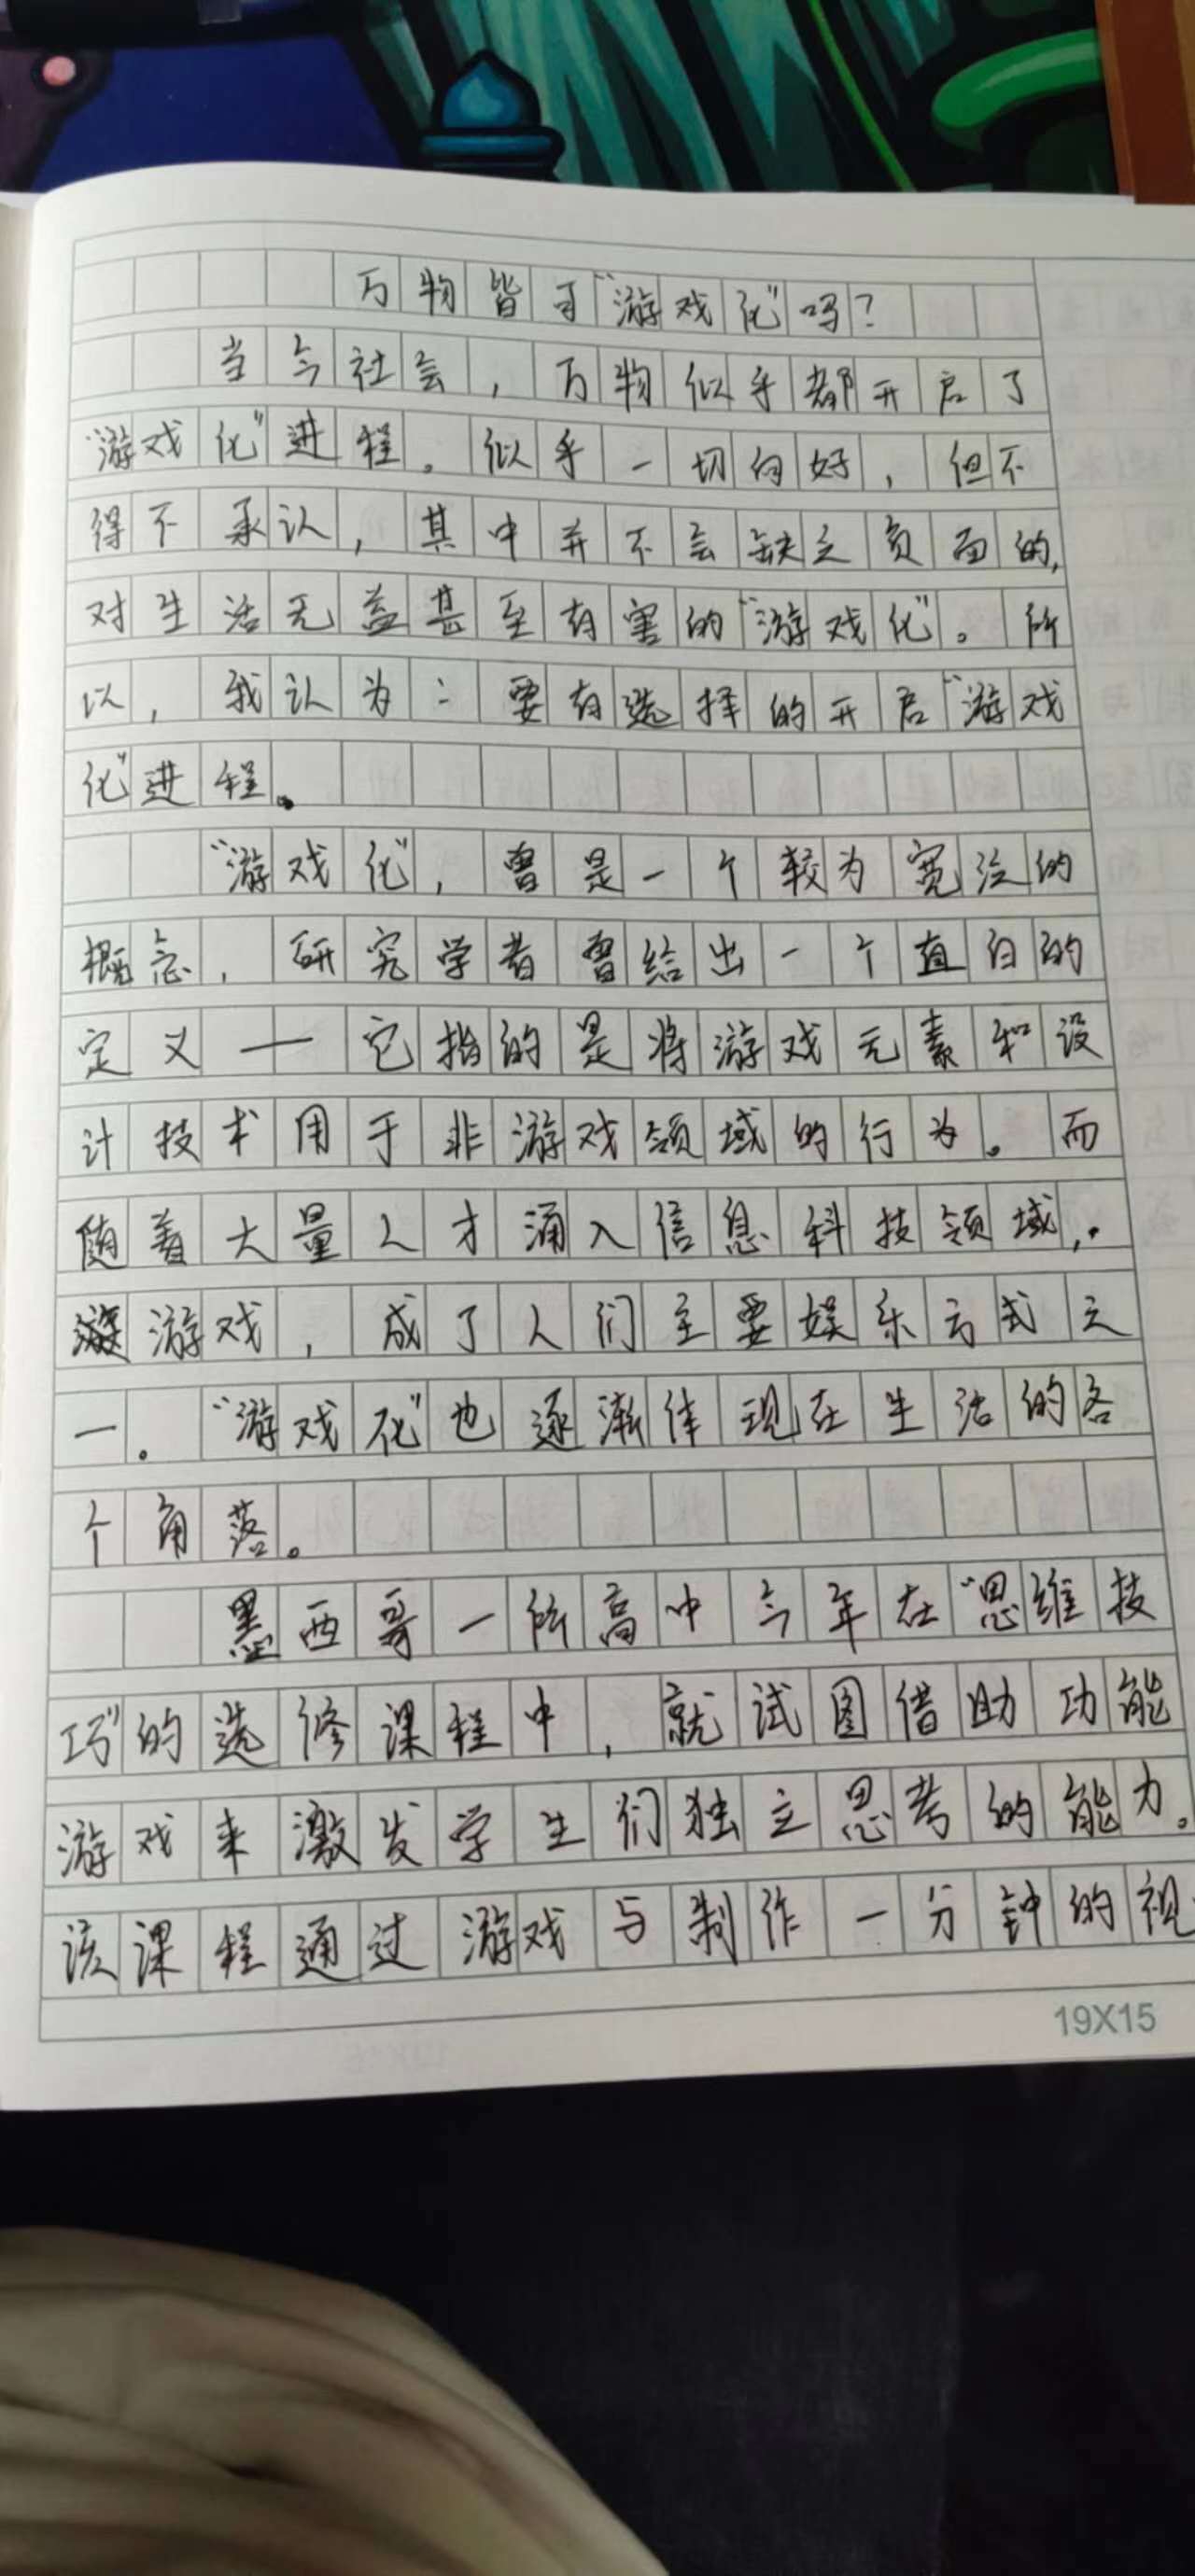 万物皆可“游戏化”吗？
当今社会，万物似乎都开启了
“游戏化”进程。似乎一切向好，但不
得不承认，其中并不会缺乏负面的，
对生活无益甚至有害的“游戏化”。所
以，我认为：要有选择的开启“游戏
化”进程。
“游戏化”，曾是一个较为宽泛的
概念，研究学者曾给出一个直白的
定义——它指的是将游戏元素和设
计技术用于非游戏领域的行为。而
随着大量人才涌入信息科技领域，
游戏，成了人们主要娱乐方式之
一。“游戏化”也逐渐体现在生活的各
个角落。
墨西哥一所高中今年在“思维技
巧”的选修课程中，就试图借助功能
游戏来激发学生们独立思考的能力。
该课程通过游戏与制作一分钟的视
19X15